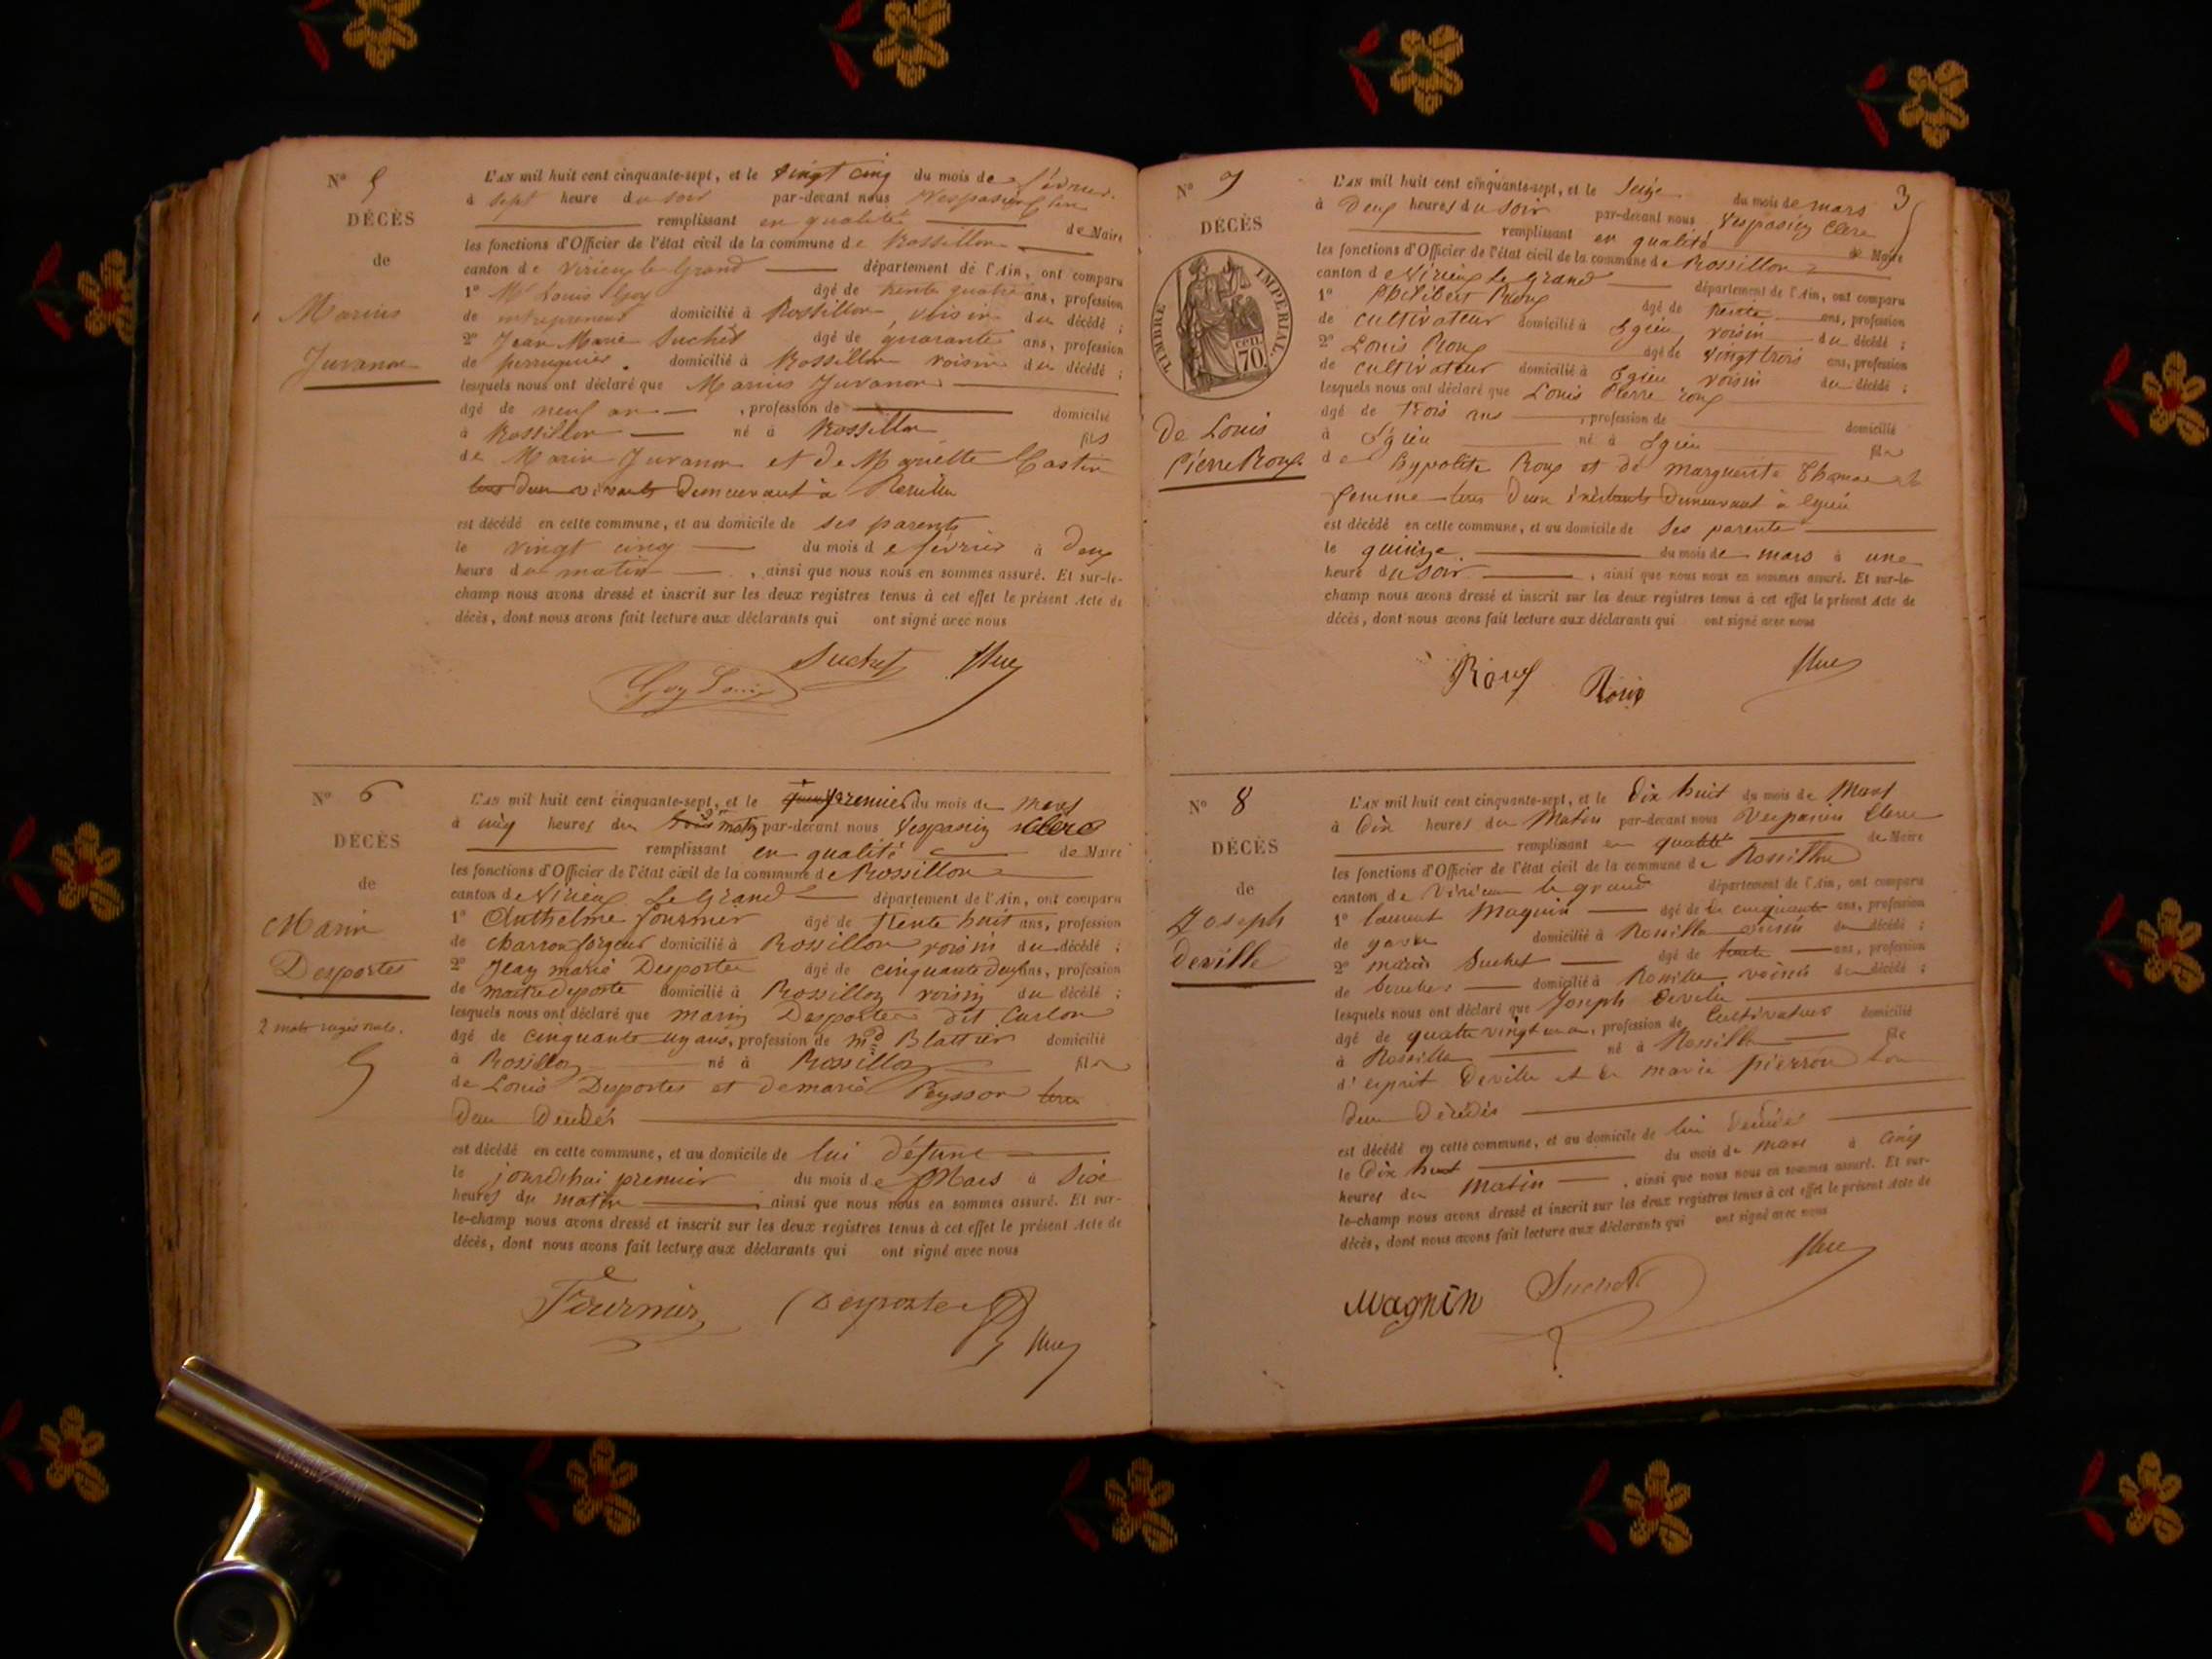 N° 5
DÉCÈS
de
Marius
Juvanon
L'AN mil huit cent cinquante-sept, et le vingt cinq du mois de février
à sept heure du soir par-devant nous Vespasien Clerc
remplissant en qualité de Maire
les fonctions d'Officier de l'état civil de la commune de Rossillon
canton de Virieu le Grand département de l'Ain, ont comparu
1° Mr Louis Goy âgé de trente quatre ans, profession
de entrepreneur domicilié à Rossillon voisin du décédé ;
2° Jean Marie Suchet âgé de quarante ans, profession
de perruquier domicilié à Rossillon voisin du décédé ;
lesquels nous ont déclaré que Marius Juvanon
âgé de neuf an , profession de domicilié
à Rossillon né à Rossillon fils
de Marin Juvanon et de Mariette Castin
tous deux vivants demeurant à Rossillon
est décédé en cette commune, et au domicile de ses parents
le vingt cinq du mois de février à deux
heure du matin , ainsi que nous nous en sommes assuré. Et sur-le-
champ nous avons dressé et inscrit sur les deux registres tenus à cet effet le présent Acte de
décès, dont nous avons fait lecture aux déclarants qui ont signé avec nous
Goy Louis Suchet Clerc
N° 6
DÉCÈS
de
Marin
Desportes
2 mots rayés nuls.
L'AN mil huit cent cinquante-sept, et le premier du mois de mars
à heures du matin par-devant nous Vespasien Clerc
remplissant en qualité de Maire
les fonctions d'Officier de l'état civil de la commune de Rossillon
canton de Virieux Le Grand département de l'Ain, ont comparu
1° Anthelme fournier âgé de trente huit ans, profession
de charron forgeur domicilié à Rossillon voisin du décédé ;
2° Jean marie Desportes âgé de cinquante deux ans, profession
de maitre de poste domicilié à Rossillon voisin du décédé ;
lesquels nous ont déclaré que marin Desportes dit Carlon
âgé de cinquante un ans, profession de md Blattier domicilié
à Rossillon né à Rossillon fils
de Louis Desportes et de marie Peysson tous
deux décédés
est décédé en cette commune, et au domicile de lui défunt
le jourdhui premier du mois de Mars à Six
heures du matin ainsi que nous nous en sommes assuré. Et sur-
le-champ nous avons dressé et inscrit sur les deux registres tenus à cet effet le présent Acte de
décès, dont nous avons fait lecture aux déclarants qui ont signé avec nous
Fournier Desportes Clerc
3
N° 7
DÉCÈS
TIMBRE IMPÉRIAL.
70 CEN.
De Louis
Pierre Roux
L'AN mil huit cent cinquante-sept, et le Seize du mois de mars
à deux heures du soir par-devant nous Vespasien Clerc
remplissant en qualité de Maire
les fonctions d'Officier de l'état civil de la commune de Rossillon
canton de Virieux Le Grand département de l'Ain, ont comparu
1° Philibert Roux âgé de trente ans, profession
de cultivateur domicilié à Egieu voisin du décédé ;
2° Louis Roux âgé de vingt trois ans, profession
de cultivateur domicilié à Egieu voisin du décédé ;
lesquels nous ont déclaré que Louis Pierre roux
âgé de trois ans , profession de domicilié
à Egieu né à Egieu fils
de hypolite Roux et de marguerite
femme tous deux demeurant à Egieu
est décédé en cette commune, et au domicile de Ses parents
le quinze du mois de mars à une
heure du soir , ainsi que nous nous en sommes assuré. Et sur-le-
champ nous avons dressé et inscrit sur les deux registres tenus à cet effet le présent Acte de
décès, dont nous avons fait lecture aux déclarants qui ont signé avec nous
Roux Roux Clerc
N° 8
DÉCÈS
de
Joseph
deville
L'AN mil huit cent cinquante-sept, et le dix huit du mois de Mars
à dix heures du Matin par-devant nous Vespasien Clerc
remplissant en qualité de Maire
les fonctions d'Officier de l'état civil de la commune de Rossillon
canton de Virieux le grand département de l'Ain, ont comparu
1° laurent Magnin âgé de cinquante ans, profession
de garde domicilié à Rossillon voisin du décédé ;
2° marin Suchet âgé de trente ans, profession
de boucher domicilié à Rossillon voisin du décédé ;
lesquels nous ont déclaré que Joseph deville
âgé de quatre vingt un an, profession de Cultivateur domicilié
à Rossillon né à Rossillon fils
d'esprit deville et de marie pierron tous
deux décédés
est décédé en cette commune, et au domicile de lui
le dix huit du mois de mars à cinq
heures du matin , ainsi que nous nous en sommes assuré. Et sur-
le-champ nous avons dressé et inscrit sur les deux registres tenus à cet effet le présent Acte de
décès, dont nous avons fait lecture aux déclarants qui ont signé avec nous
Magnin Suchet Clerc